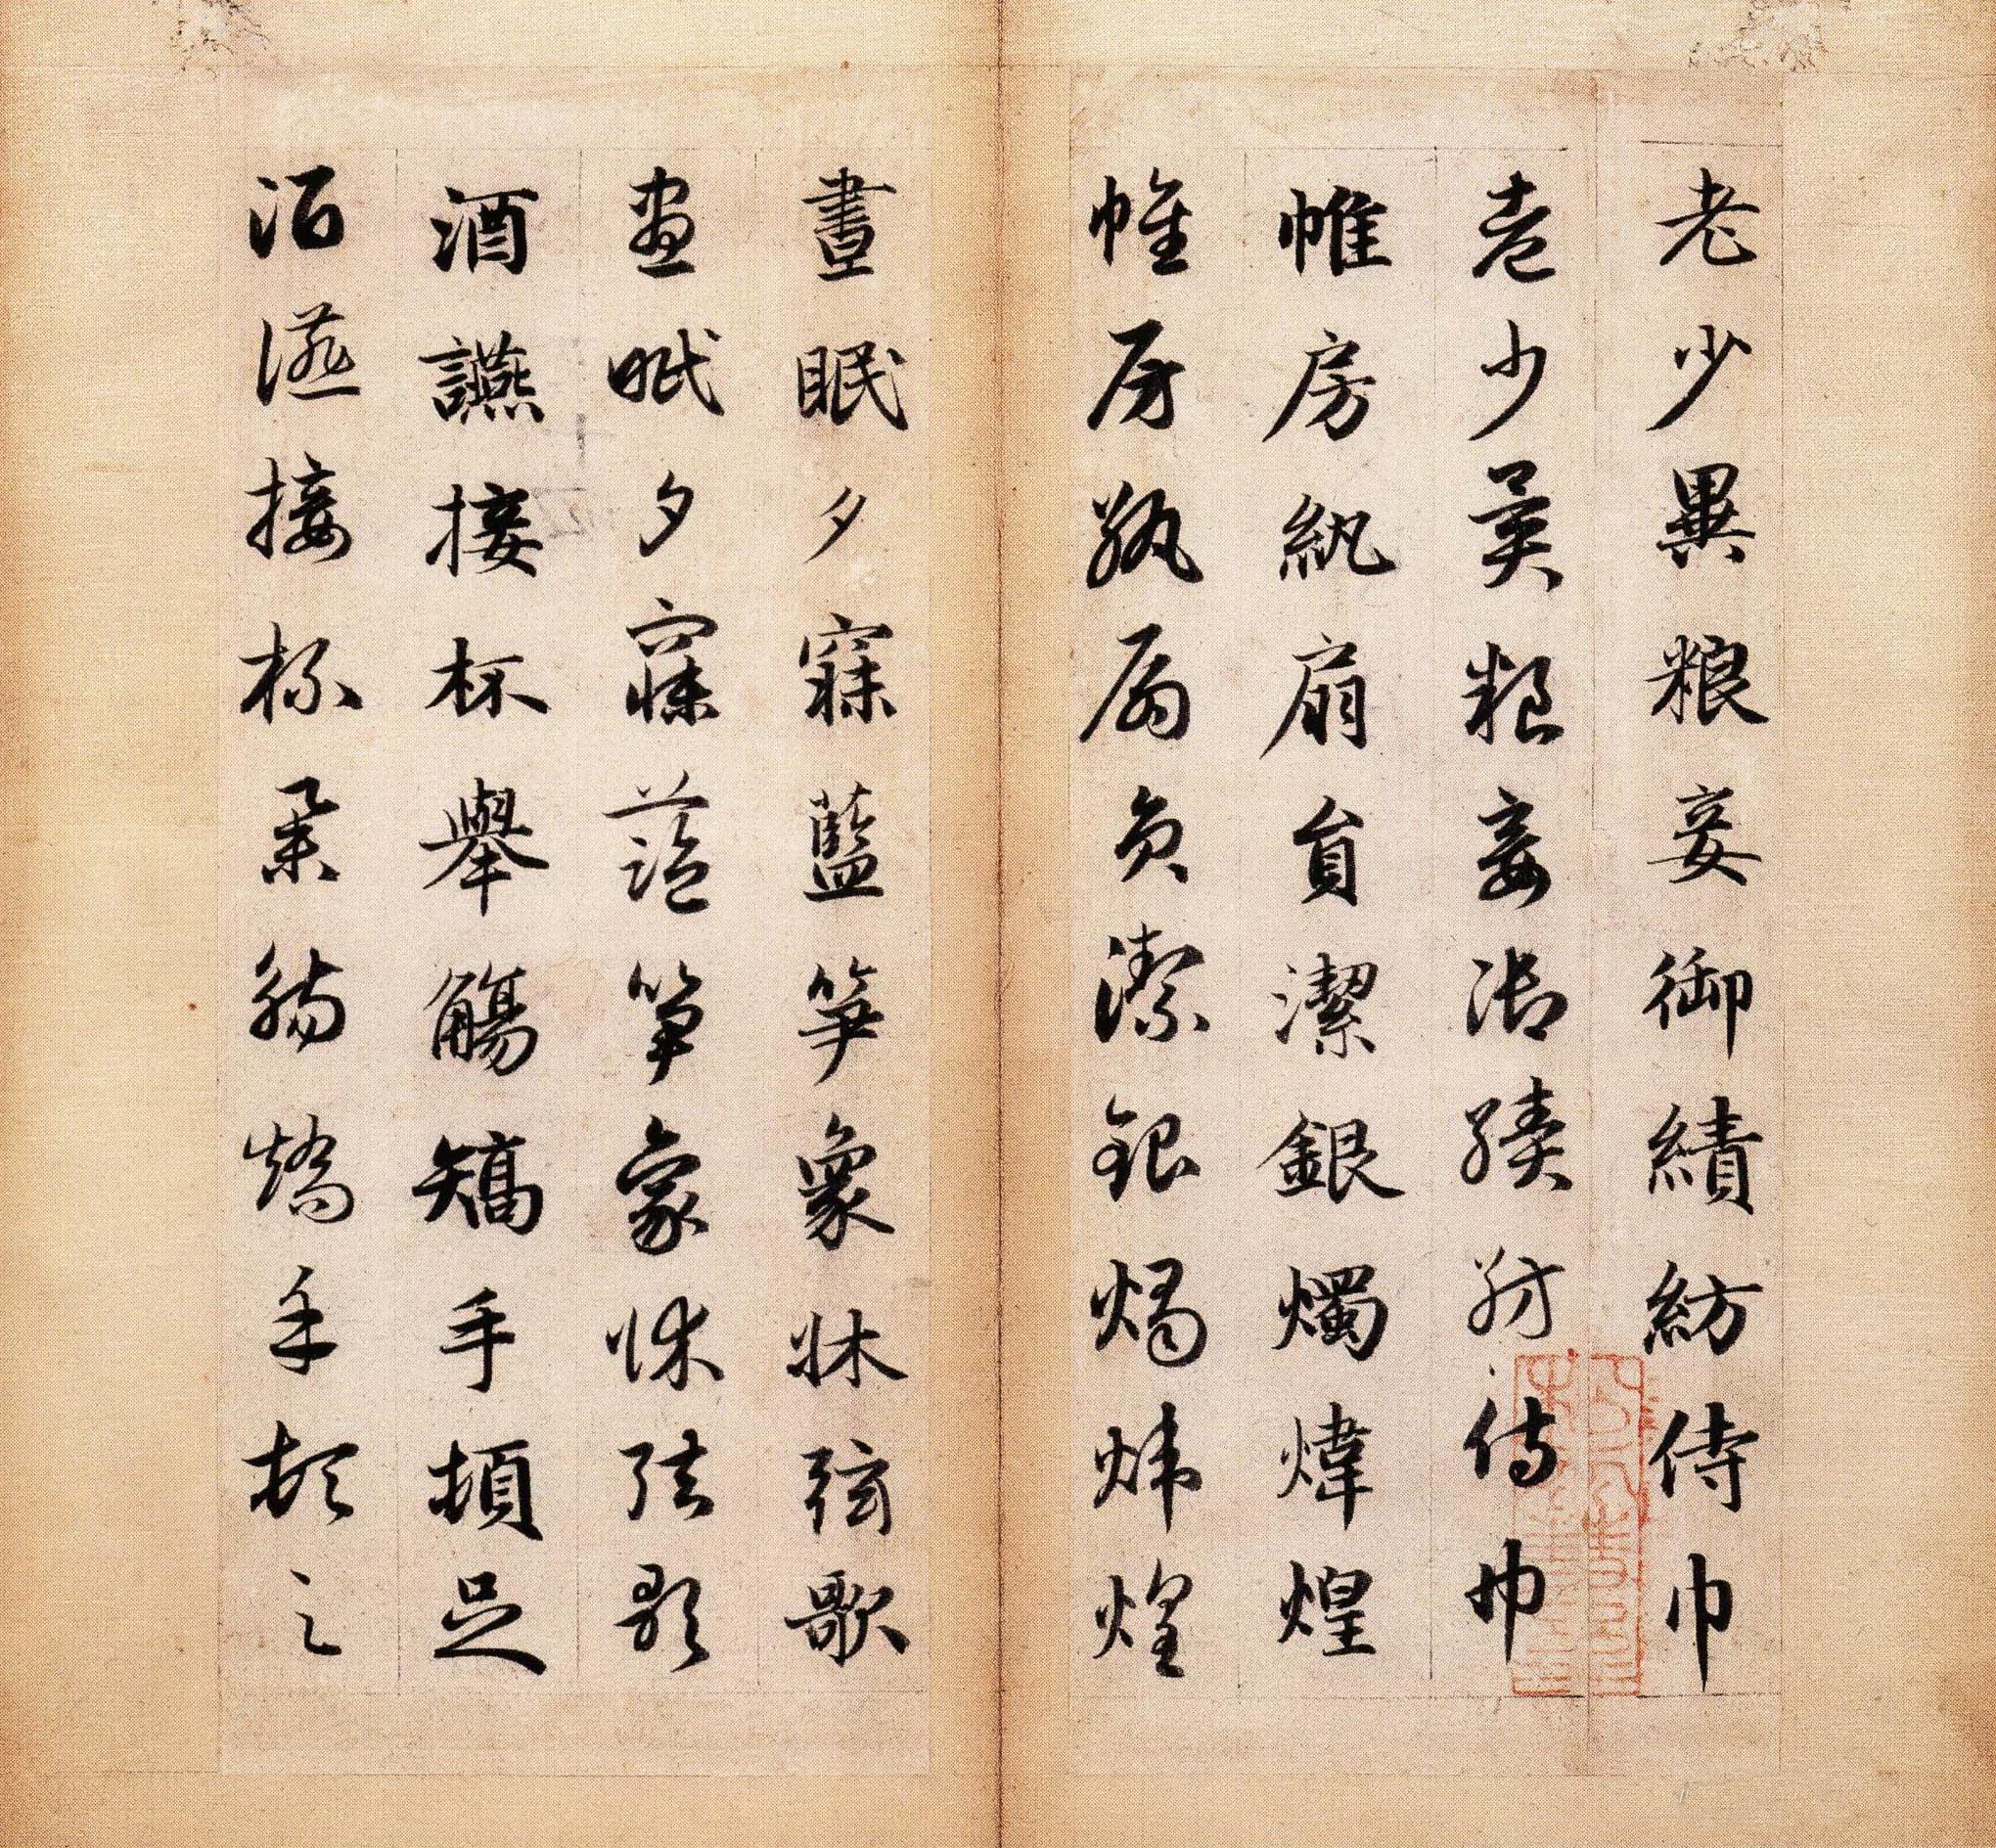 老少異粮妾御績紡侍巾
老少異粮妾御績紡侍巾
帷房紈扇員潔銀燭煒煌
帷房紈扇員潔銀燭煒煌
晝眠夕寐藍笋象牀弦歌
晝眠夕寐藍笋象牀弦歌
酒讌接杯舉觴矯手頓足
酒讌接杯舉觴矯手頓足